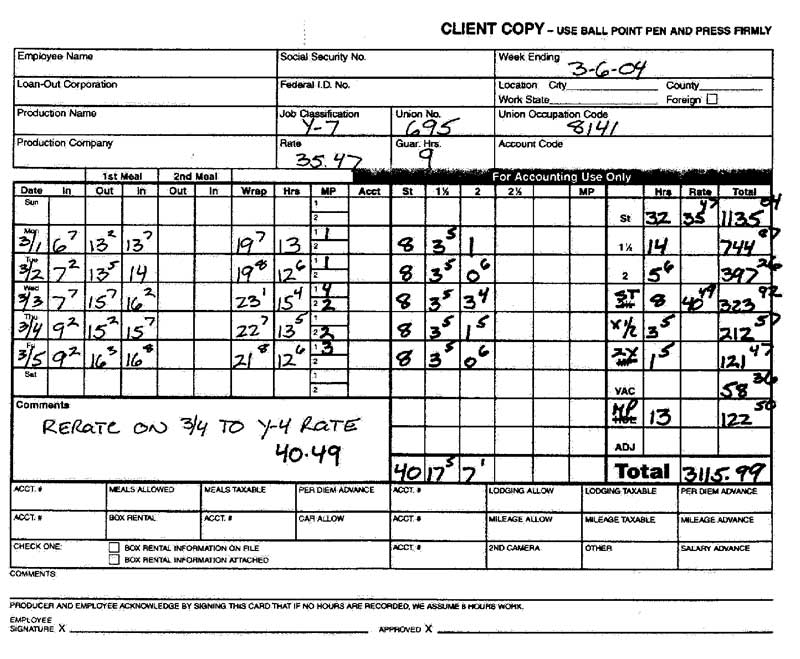 CLIENT COPY – USE BALL POINT PEN AND PRESS FIRMLY
Employee Name Social Security No. Week Ending 3-6-04
Loan-Out Corporation Federal I.D. No. Location City County
Work State Foreign
Production Name Job Classification Y-7 Union No. 695 Union Occupation Code 8141
Production Company Rate 35.47 Guar. Hrs. 9 Account Code
1st Meal 2nd Meal For Accounting Use Only
Date In Out In Out In Wrap Hrs MP Acct St 1½ 2 2½ MP Hrs Rate Total
Sun 1 2 St 32 35 47 1135 04
Mon 3/1 6 7 13 2 13 7 19 7 13 1 1 2 8 3 5 1 1½ 14 744 87
Tue 3/2 7 2 13 5 14 19 8 12 6 1 1 2 8 3 5 0 6 2 5 6 397 26
Wed 3/3 7 7 15 7 16 2 23 1 15 4 1 4 2 2 8 3 5 3 4 ST 8 40 49 323 92
Thu 3/4 9 2 15 2 15 7 22 7 13 5 1 2 2 8 3 5 1 5 X1/2 3 5 212 57
Fri 3/5 9 2 16 3 16 8 21 8 12 6 1 3 2 8 3 5 0 6 2X 1 5 121 47
Sat 1 2 VAC 58 36
Comments MP HOL 13 122 50
RERATE ON 3/4 TO Y-4 RATE ADJ
40.49
40 17 5 7 1 Total 3115.99
ACCT. # MEALS ALLOWED MEALS TAXABLE PER DIEM ADVANCE ACCT. # LODGING ALLOW LODGING TAXABLE PER DIEM ADVANCE
ACCT. # BOX RENTAL ACCT. # CAR ALLOW ACCT. # MILEAGE ALLOW MILEAGE TAXABLE MILEAGE ADVANCE
CHECK ONE: BOX RENTAL INFORMATION ON FILE ACCT. # 2ND CAMERA OTHER SALARY ADVANCE
BOX RENTAL INFORMATION ATTACHED
COMMENTS:
PRODUCER AND EMPLOYEE ACKNOWLEDGE BY SIGNING THIS CARD THAT IF NO HOURS ARE RECORDED, WE ASSUME 8 HOURS WORK.
EMPLOYEE
SIGNATURE X APPROVED X